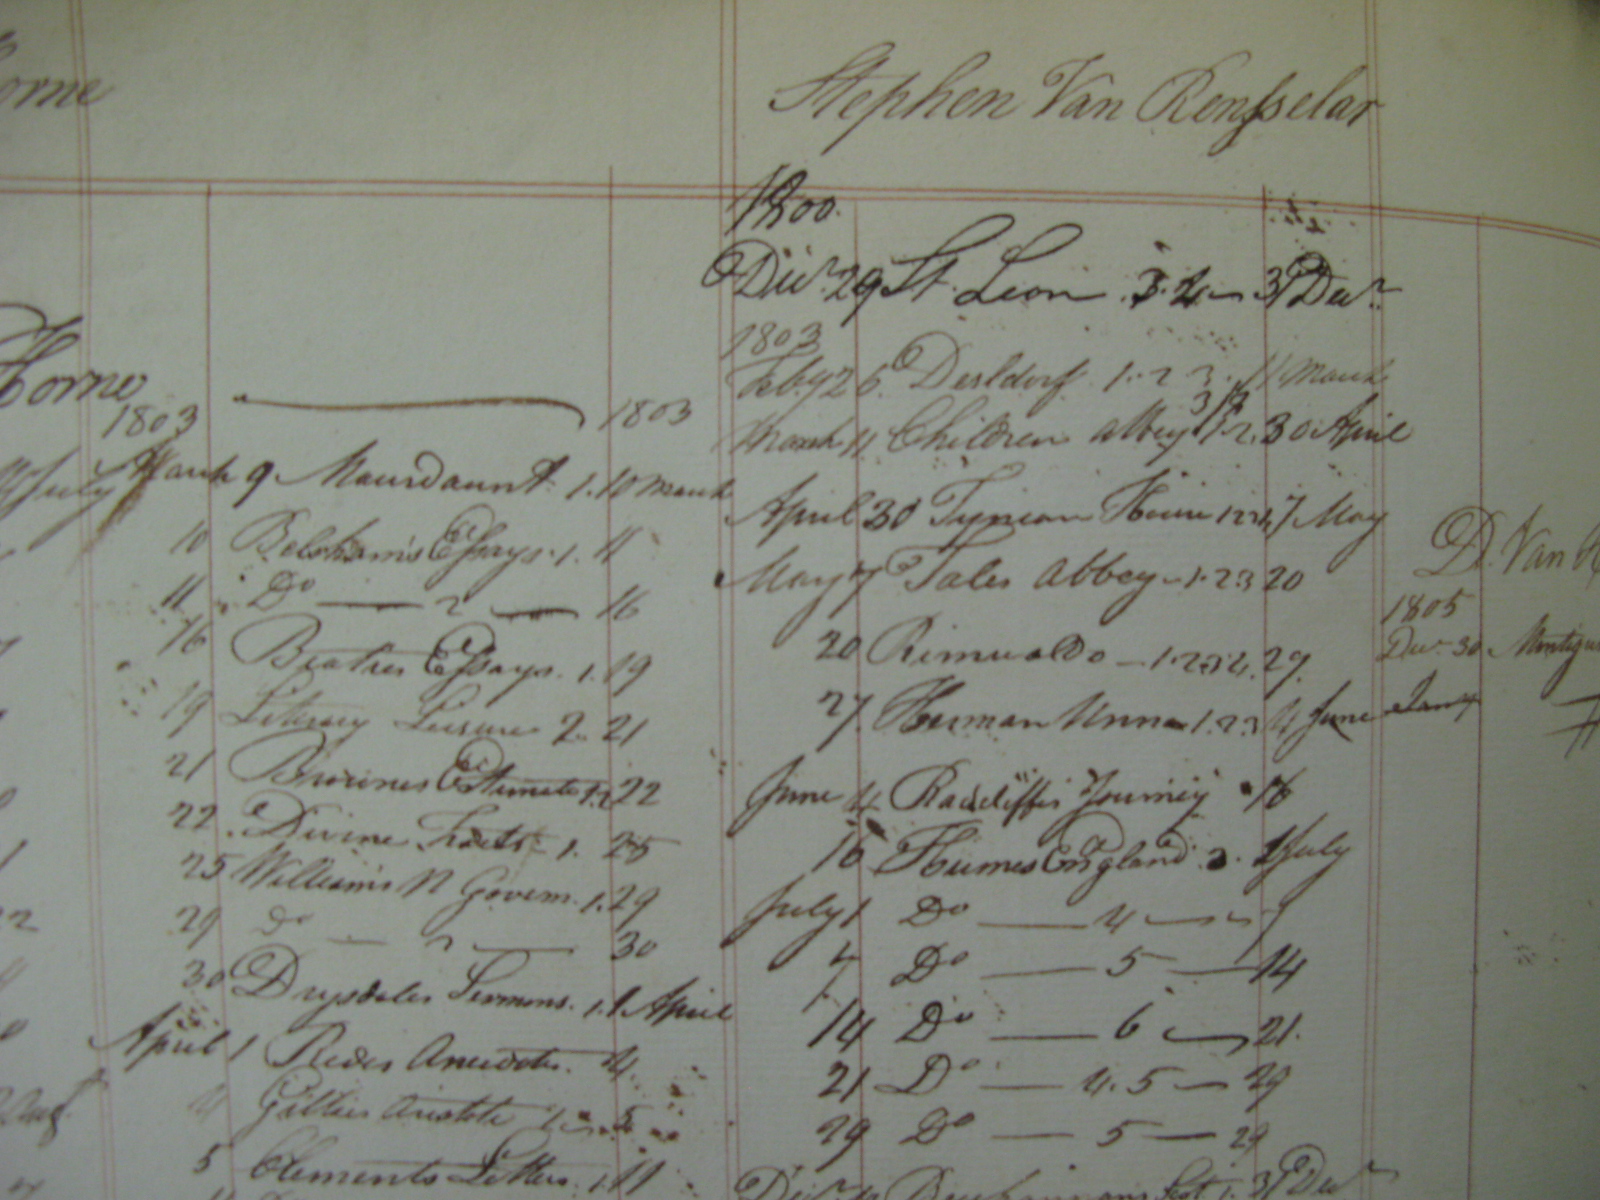 Stephen Van Rensselar
1800
Decr 29 St. Leon 3. 4 31 Decr
1803
Feby 26 Dusldorf 1. 2 3. 11 March
March 11 Children abbey 1. 2. 3 30 April
April 30 Tynian 1 2 3 4 7 May
May 7 Tales Abbey - 1. 2 3 20
20 Rimualdo - 1. 2. 3. 4. 29
27 Herman Unna - 1. 2 3 4 June
June 4 Radcliffes Journey 16
16 Humes England 3. 1 July
July 1 Do 4 7
7 Do 5 14
14 Do 6 21.
21 Do 4. 5 29
29 Do 5 29
Decr Buchannans 1. 31 Decr
orne
Thorne
1803 1803
July
March 9 Mourdaunt 1. 10 March
10 Belshams Essays. 1. 11
11 Do 2 16
16 Beaties Essays. 1. 19
19 Literary Leisure 2. 21
21 Brownes Estimate 1. 2 22
22. Divine Tracts 1. 25
25 Williams N Govern. 1. 29
29 Do 2 30
30 Drysdales Sermons. 1. 1 April
April 1 Anecdotes. 4
4 Gillies Aristotle 1. 5
5 Clements Letters. 1. 11
D. Van R
1805
Decr 30
Jany